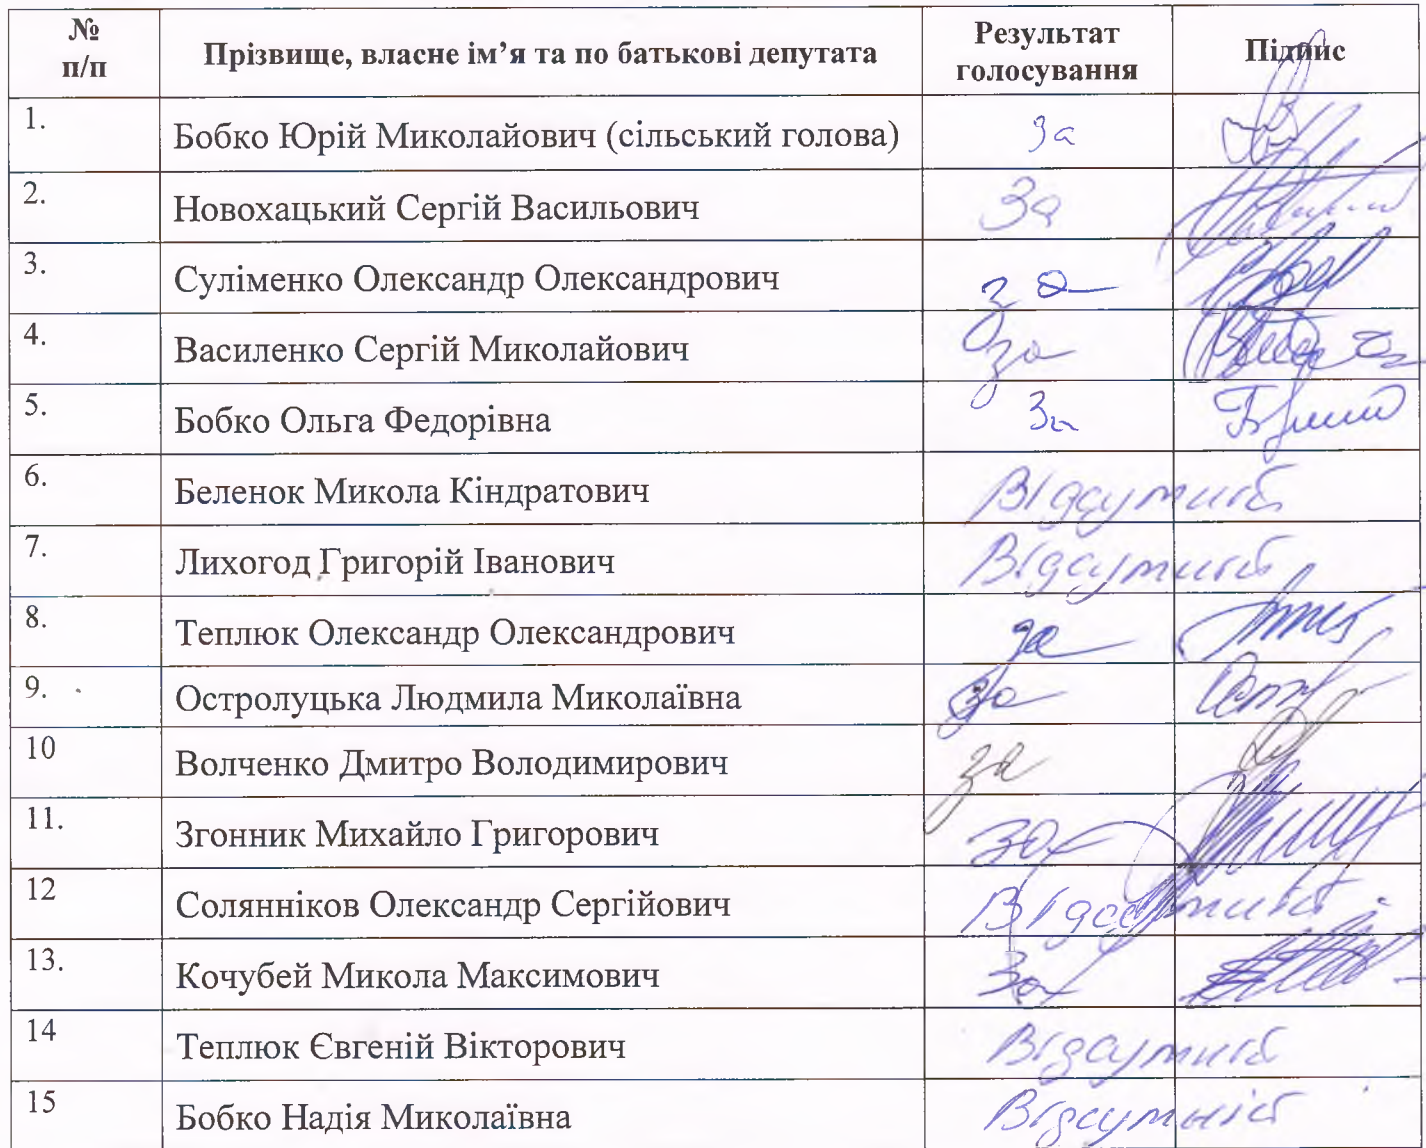 №
п/п
Прізвище, власне ім’я та по батькові депутата
Результат
голосування
Підпис
1.
Бобко Юрій Миколайович (сільський голова)
За
2.
Новохацький Сергій Васильович
За
3.
Суліменко Олександр Олександрович
за
4.
Василенко Сергій Миколайович
за
5.
Бобко Ольга Федорівна
За
6.
Беленок Микола Кіндратович
Відсутній
7.
Лихогод Григорій Іванович
Відсутній
8.
Теплюк Олександр Олександрович
за
9.
Остролуцька Людмила Миколаївна
За
10
Волченко Дмитро Володимирович
за
11.
Згонник Михайло Григорович
за
12
Солянніков Олександр Сергійович
Відсутній
13.
Кочубей Микола Максимович
За
14
Теплюк Євгеній Вікторович
Відсутній
15
Бобко Надія Миколаївна
Відсутній